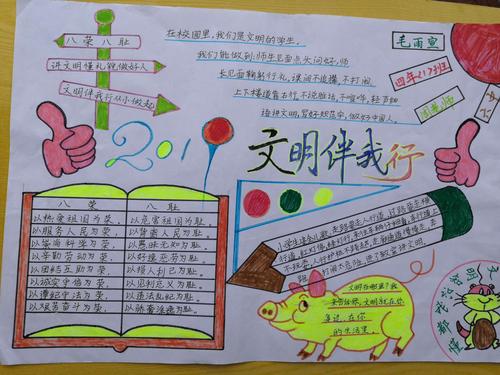 八荣八耻
讲文明懂礼貌做好人
文明伴我行从小做起
在校园里,我们是文明的学生。
我们能做到:师生见面点头问好,师
长见面鞠躬行礼,课间不追模,不打闹,
上下楼道靠右行,不说脏话,不喧哗,轻声细
语讲文明,写好规范字,做好中国人。
毛雨宣
四年(7)班
2019
文明伴我行
八荣
八耻
以热爱祖国为荣,
以危害祖国为耻。
以服务人民为荣,
以背离人民为耻。
以崇尚科学为荣,
以愚昧无知为耻。
以辛勤劳动为荣,
以好逸恶劳为耻。
以团结互助为荣,
以损人利己为耻。
以诚实守信为荣,
以见利忘义为耻。
以遵纪守法为荣,
以违法乱纪为耻。
以艰苦奋斗为荣,
以骄奢淫逸为耻。
文明在哪里?我
来告诉你,文明就在你
身边,在你
的生活里。